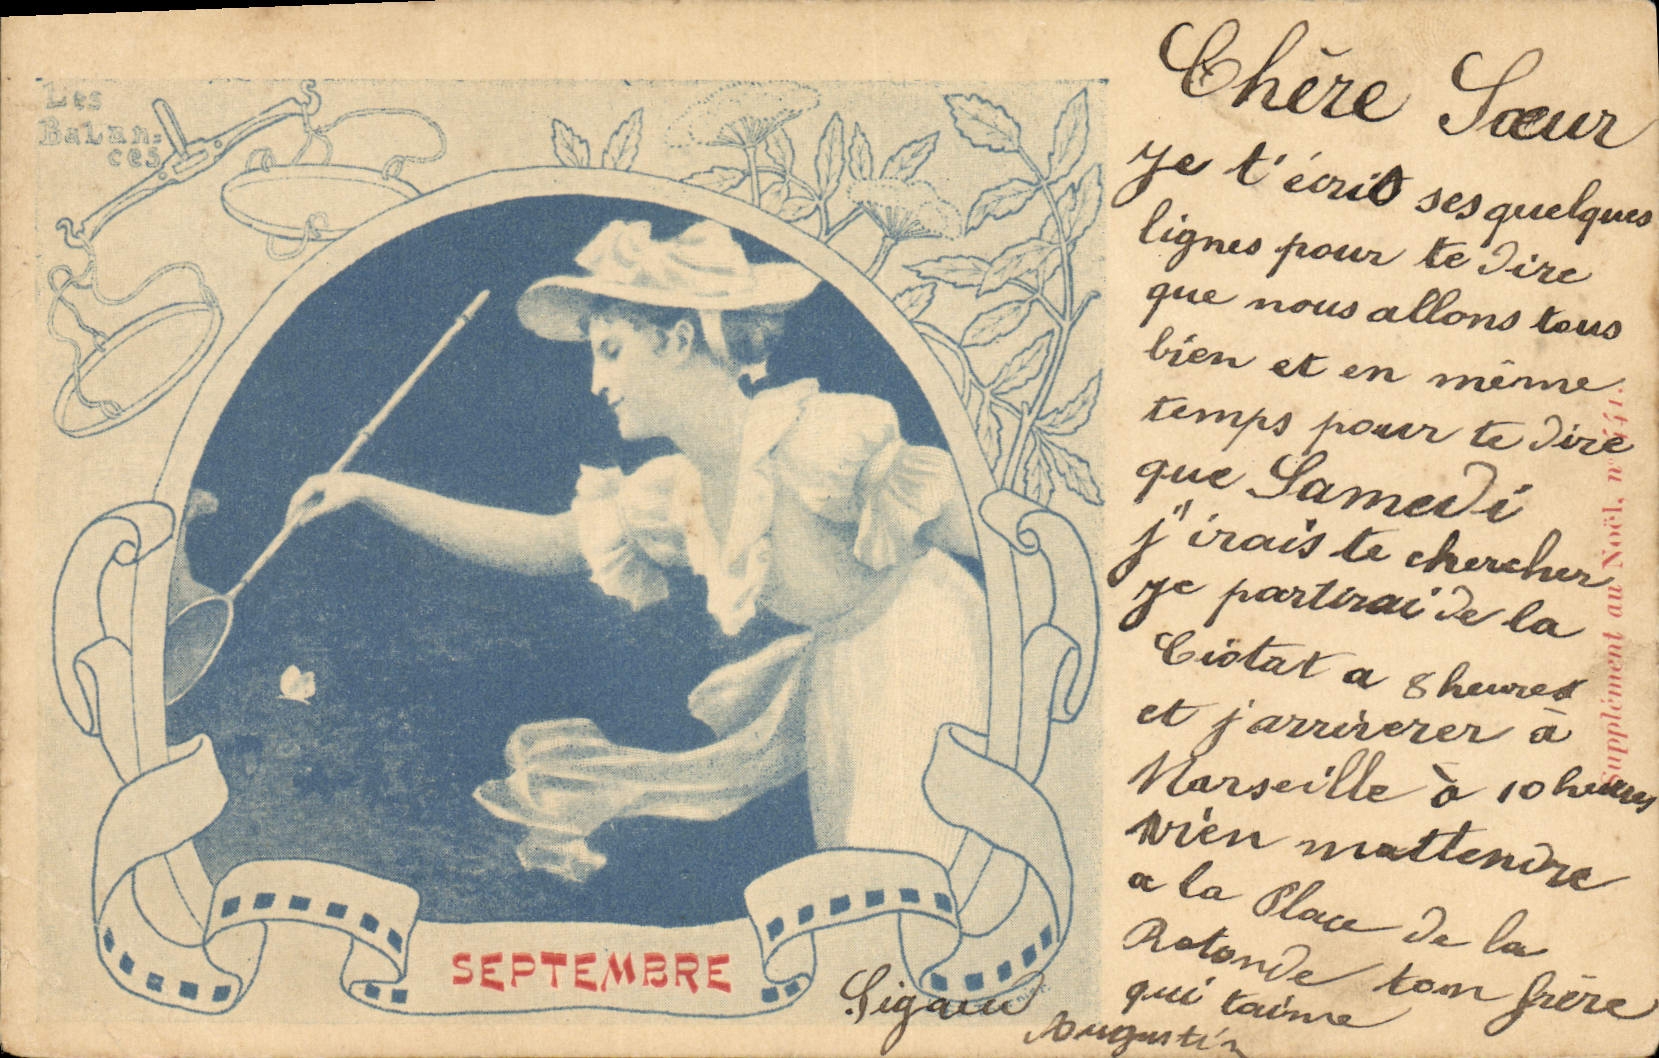 Les
Balan-
ces
SEPTEMBRE
Chère Sœur
je t'écris ses quelques
lignes pour te dire
que nous allons tous
bien et en même
temps pour te dire
que Samedi
j'irais te chercher
je partirai de la
Ciotat a 8 heures
et j'arriverer à
Marseille à 10 heures
vien mattendre
a la Place de la
Rotonde ton frère
qui taime
Augustin
Supplément au Noël, n°